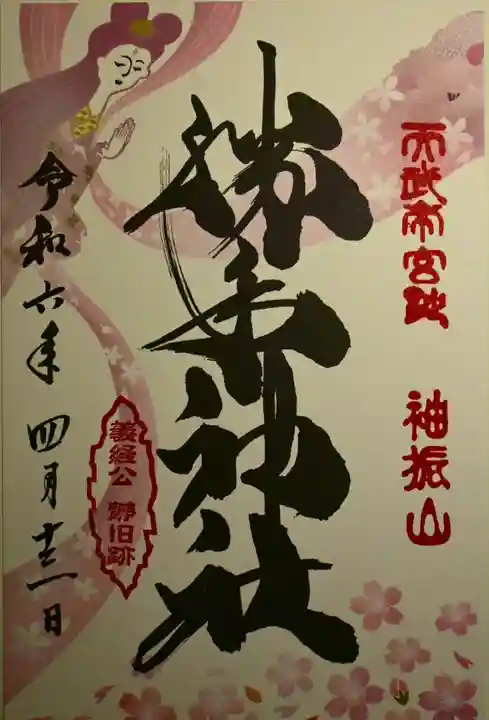 天武帝宮
袖振山
勝手神社
義経公
静旧跡
令和六年
四月十三日